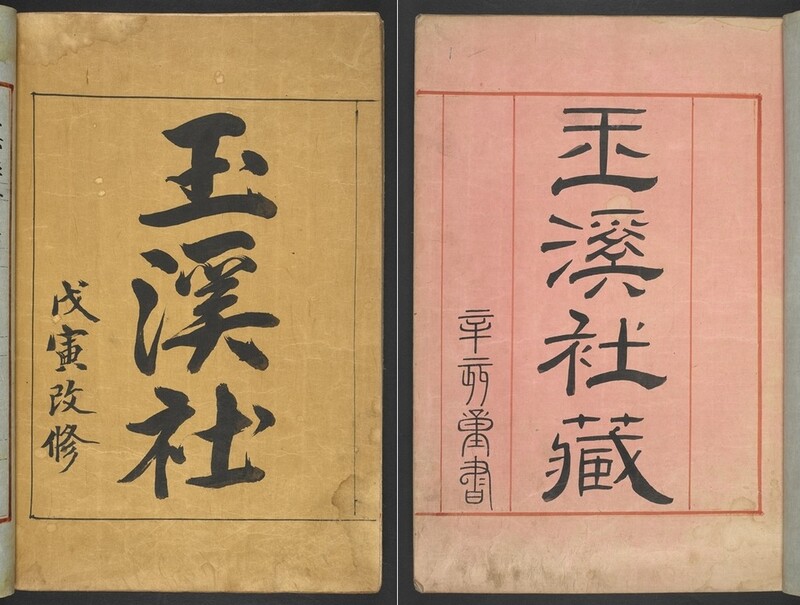 玉溪社
戊寅改修
玉溪社藏
辛書